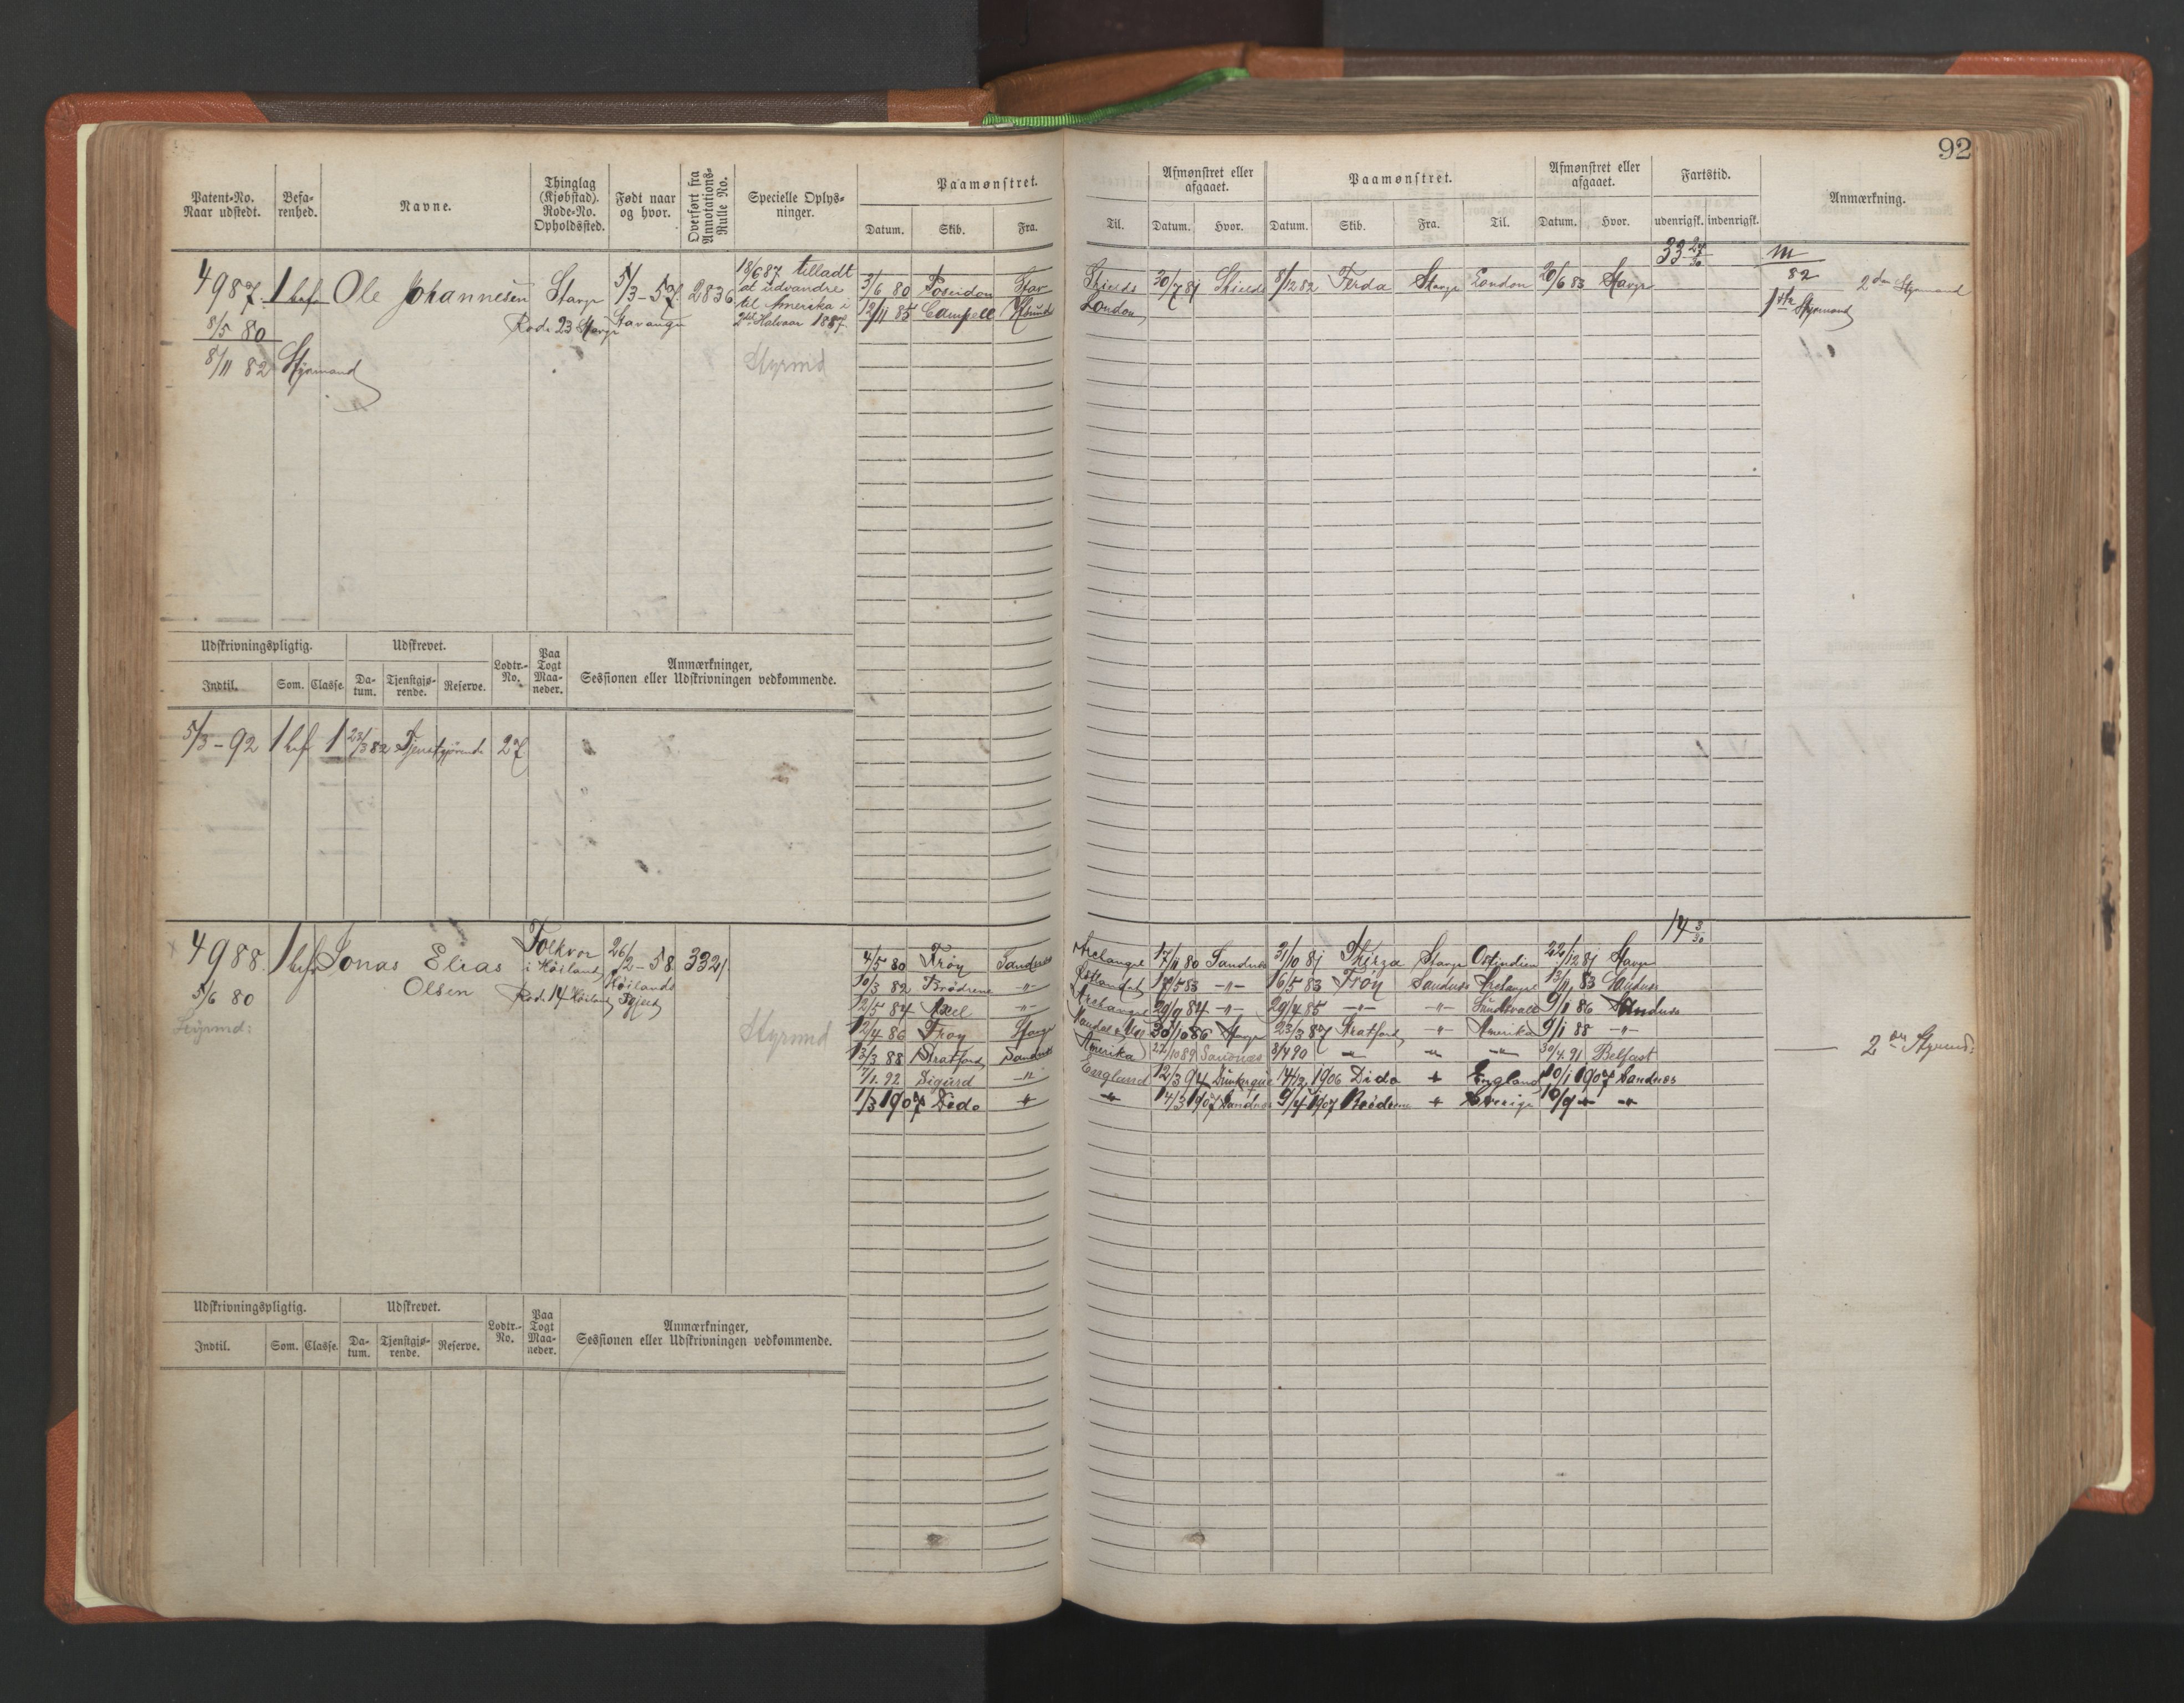 92
Patent-No.
Naar udstedt.
Befa-
renhed.
Navne.
Thinglag
(Kjøbstad).
Rode-No.
Opholdssted.
Født naar
og hvor.
Overført fra
Annotations-
Rulle No.
Specielle Oplys-
ninger.
Paamønstret.
Datum. Skib. Fra.
Til.
Afmønstret eller
afgaaet.
Datum. Hvor.
Paamønstret.
Datum. Skib. Fra. Til.
Afmønstret eller
afgaaet.
Datum. Hvor.
Fartstid.
udenrigsk. indenrigsk.
Anmærkning.
4987. 1 bef Ole Johannesen Stavgr 5/3-57. 2836
8/5 80 Rode 23 Stavgr Stavanger
8/11 82 Styrmand
18/6 87 tilladt
at udvandre
til Amerika i
2det Halvaar 1887.
Styrmd
3/6 80 Poseidon Stav Shields 30/7 81 Shields 8/12 82 Ferda Stavgr London 20/6 83 Stavgr
12/11 85 Campell London
33 24/30
82 2den Styrmand
1ste Styrmand
Udskrivningspligtig. Udskrevet. Lodtr.-
No. Paa
Togt
Maa-
neder. Anmærkninger,
Sessionen eller Udskrivningen vedkommende.
Indtil. Som. Classe. Da-
tum. Tjenstgjø-
rende. Reserve.
5/3-92 1 bef 1 23/3 82 Tjenstgjørende 27
4988. 1 bef Jonas Elias Folkvor 26/2-58 3321
Olsen i Høiland Høilands
5/6 80 Rode 14 Høiland Pgjeld
Styrmd:
Styrmd
14 3/30
4/5 80 Frøy Sandnes Archangel 17/11 80 Sandnes 31/10 81 Thirza Stavgr Ostindien 22/12 81 Stavgr
10/3 82 Brødrene -"- Østlandet 17/5 83 -"- 16/5 83 Frøy Sandnes Archangel 13/11 83 Sandnes
12/5 84 Axel -"- Archangel 29/9 84 -"- 29/4 85 -"- -"- Sundsvald 9/1 86 Sandnes
12/4 86 Frøy Stavgr 30/10 86 Stavgr 23/3 87 Stratford -"- Amerika 9/1 88 -"-
13/3 88 Stratford Sandnes Amerika 22/10 89 Sandnes 8/4 90 -"- -"- -"- 30/4 91 Belfast
7/1 92 Sigurd -"- England 12/3 94 Dünkerque 14/12 1906 Dido -"- England 10/1 1907 Sandnes
1/3 1907 Dido -"- -"- 14/3 1907 Sandnes 9/4 1907 Brødrene -"- Sverige 10/9 -"- -"-
2en Styrmd:
Udskrivningspligtig. Udskrevet. Lodtr.-
No. Paa
Togt
Maa-
neder. Anmærkninger,
Sessionen eller Udskrivningen vedkommende.
Indtil. Som. Classe. Da-
tum. Tjenstgjø-
rende. Reserve.